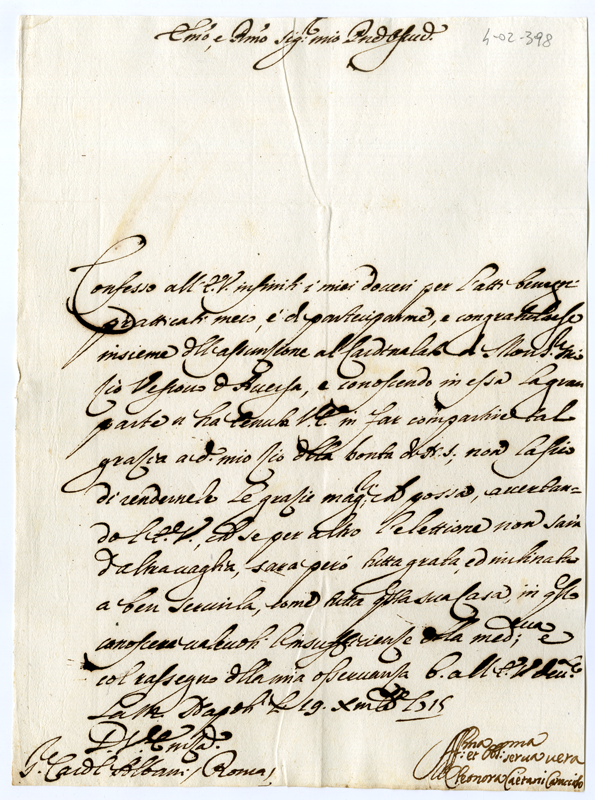 Em̃o, e Rmo Sig.r mio Prõe Ossẽd.
4-02-398
Confesso all'E.V. infiniti i miei doveri per l'atti benigni
pratticati meco, e di parteciparme, e congratularse
insieme dell'assunsione al Cardinalato di Mons.r mio
Zio Vescovo d'Aversa, e conoscendo in essa la gran
parte ha tenuta V.E. in far compartire tal
grazia a d.º mio Zio dalla bontà di N.S., non lascio
di rendernele le grazie mag.ri che possa, accertan-
do l'E.V., che se per altro l'elettione non saria
d'altra vaglia, sarà però tutta grata, ed inclinata
a ben servirla, come tutta q.sta sua Casa, in q.sto
conoscerà valevoli l'insufficienze della med.ma; e
col rassegno della mia osservanza b. all'E.V. 
le m. Napoli li 19. Xmbre 1715
D. V. Em̃a
S.r Card.l Albani Roma
Aff.ma et Obl.ma serva vera
Eleonora Caetani Caracciolo